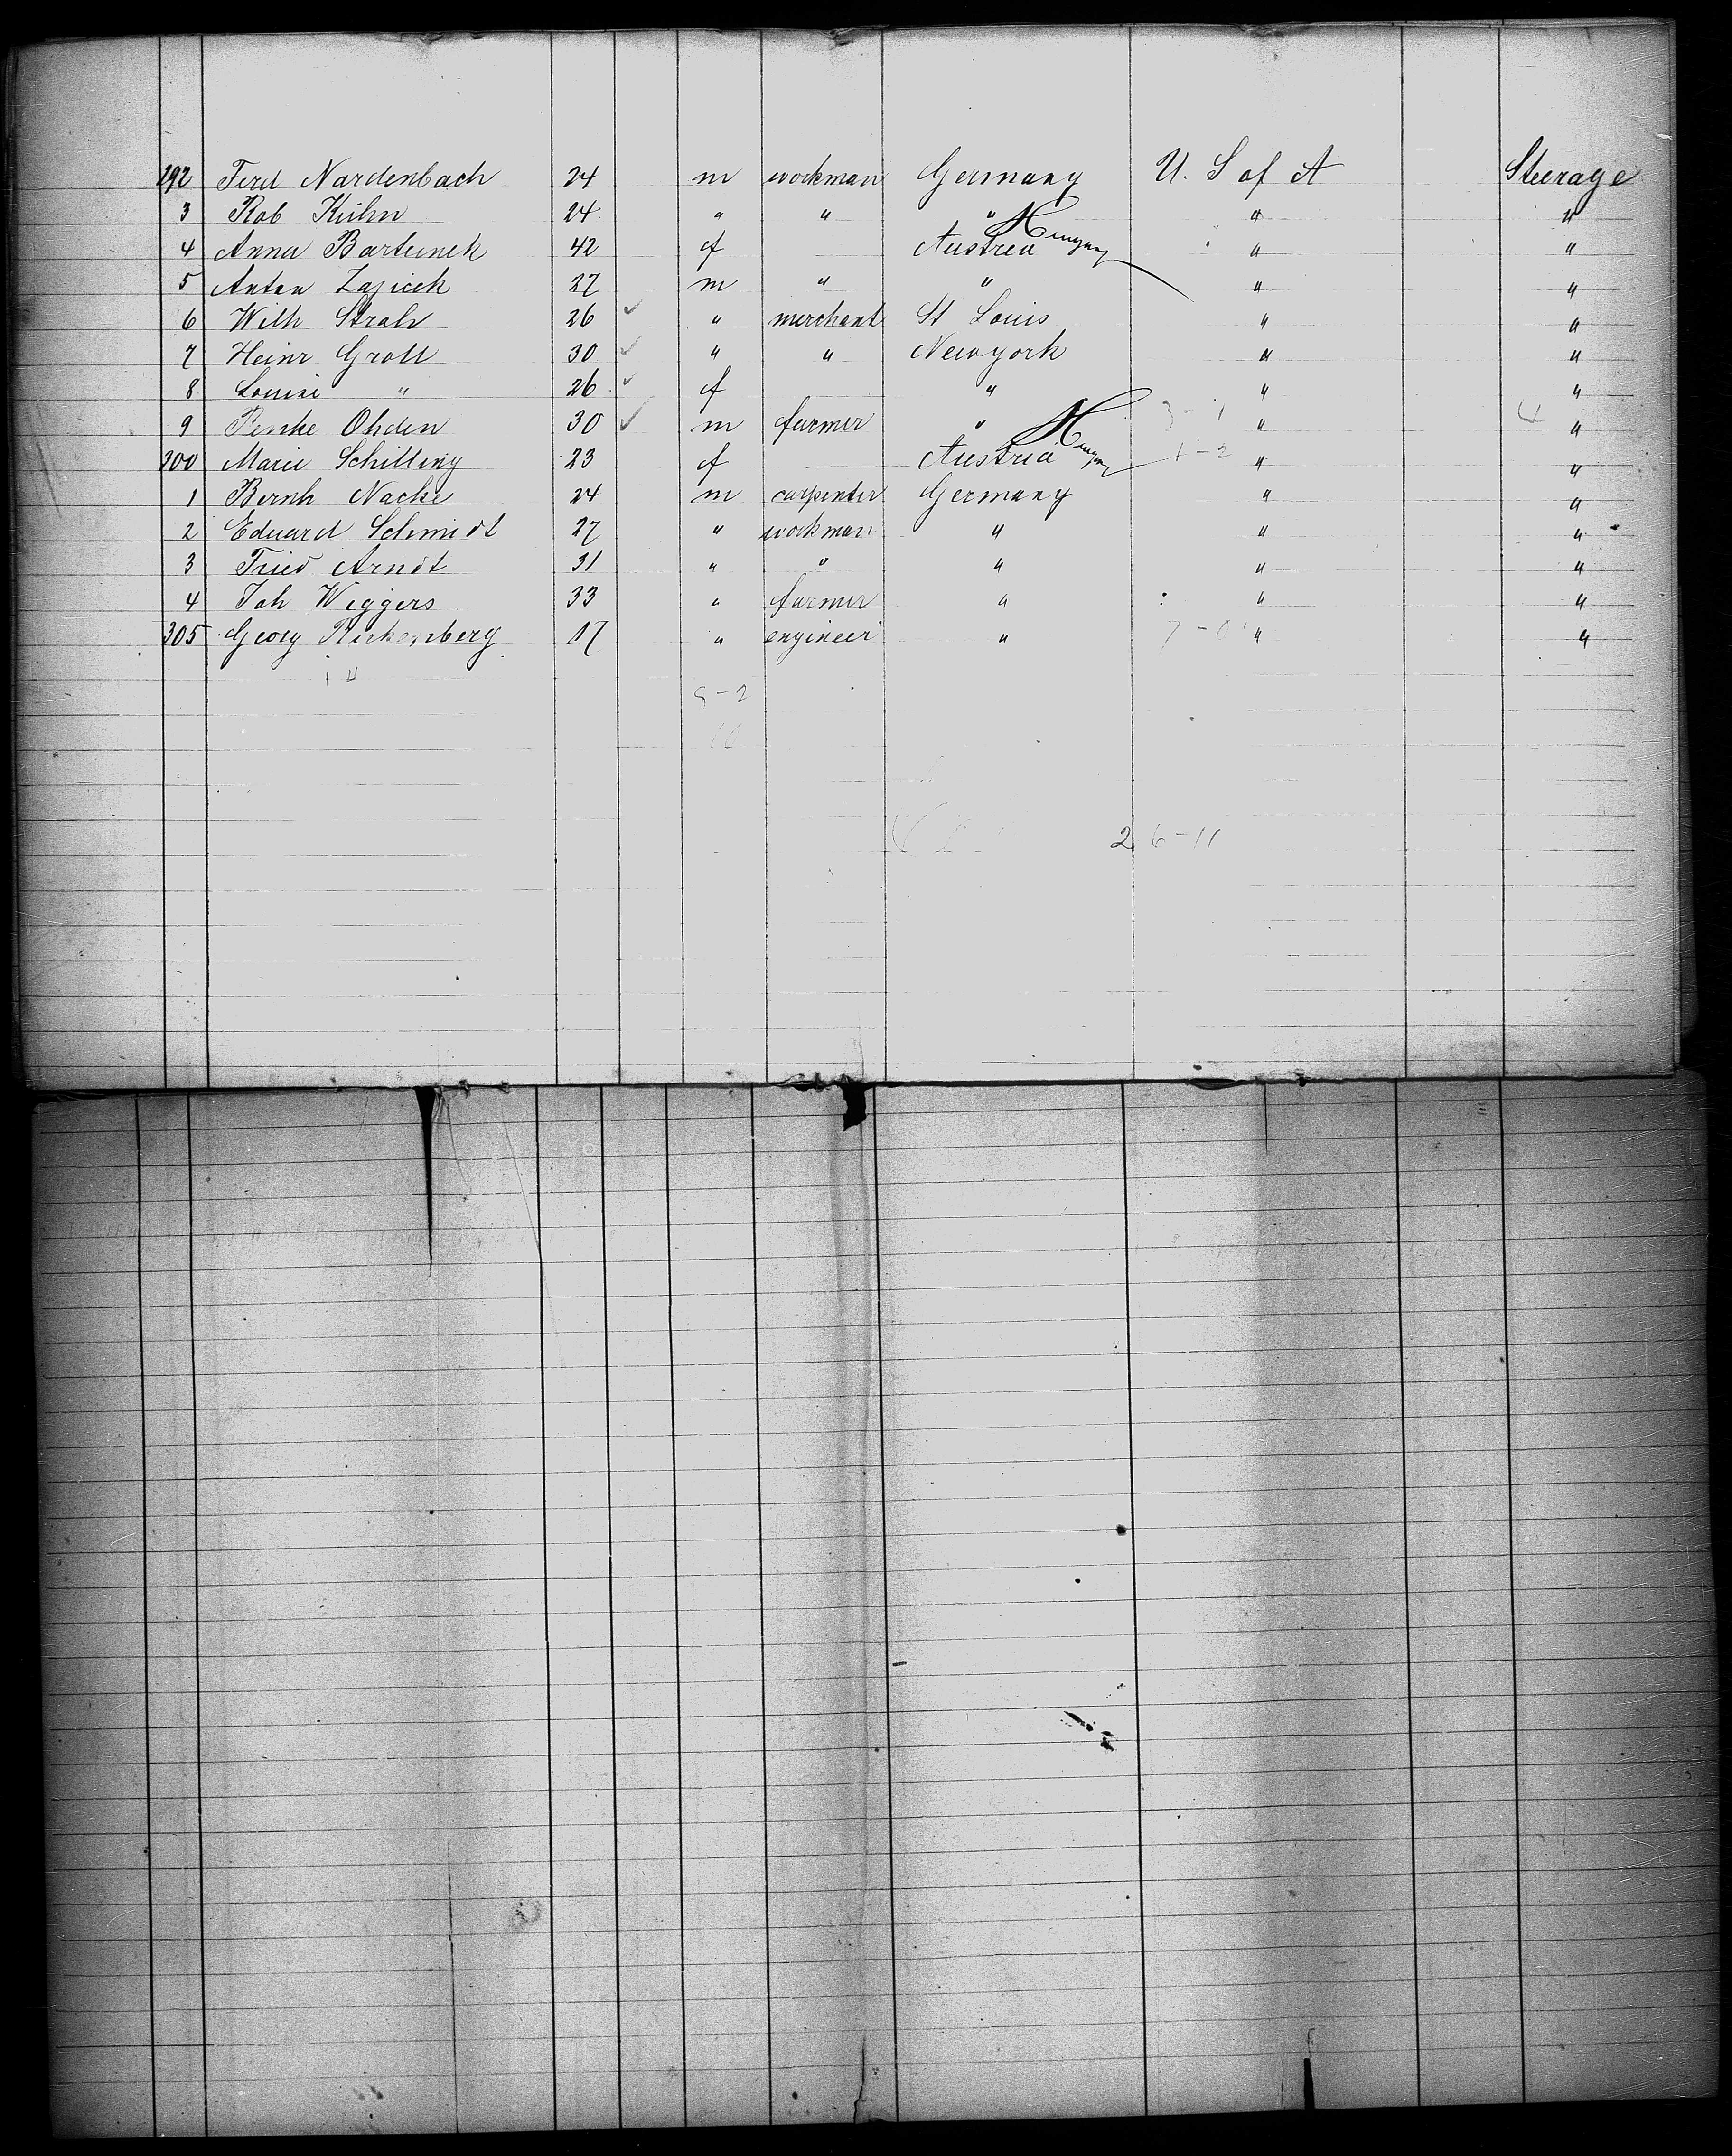 292 Ferd Nardenbach 24 m workman Germany U. S of A Steerage
3 Rob Kühn 24 " " " " "
Hungary
4 Anna Bartunek 42 f Austria " "
5 Anton Zajicek 27 m " " " "
6 Wilh Strah 26 ✓ " merchant St Louis " "
7 Heinr Groll 30 ✓ " " Newyork " "
8 Louise " 26 ✓ f " " "
9 Ohden 30 ✓ m farmer " " 4 "
Hungary
300 Marie Schilling 23 f Austria 1-2 " "
1 Bernh Nacke 24 m carpenter Germany " "
2 Eduard Schmidt 27 " workman " " "
3 Fried Arndt 31 " " " " "
4 Joh Wiggers 33 " farmer " " "
305 Georg 17 " engineer " 7-0 " "
9-2
10
26-11